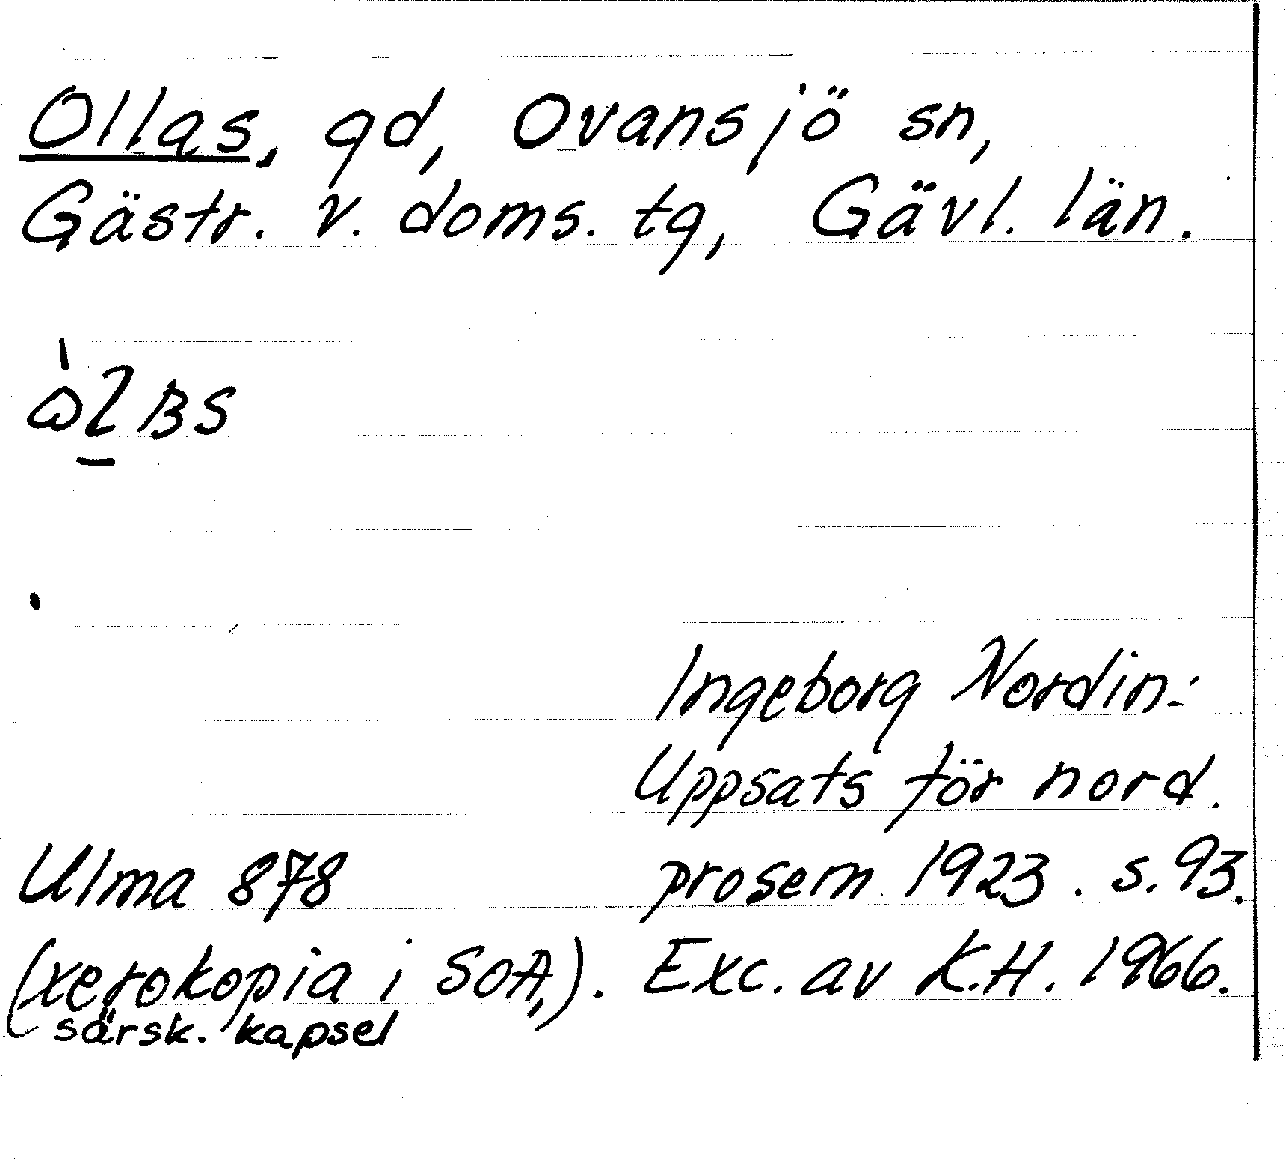 Ollas, gd, Ovansjö sn,
Gästr. v. doms. tg, Gävl. län.
Ingeborg Nordin:
Uppsats för nord.
Ulma 878 prosem. 1923. s. 93.
(xerokopia i SOA,). Exc. av K.H. 1966.
särsk. kapsel